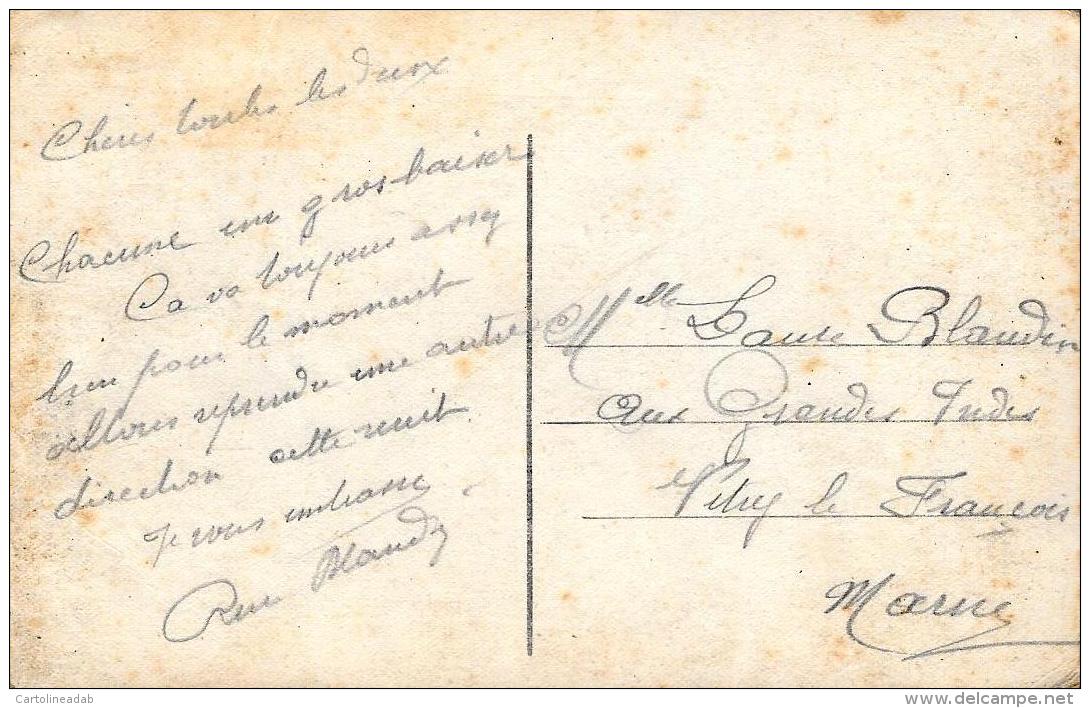 Chères toutes les deux
Chacune un gros baiser
Ça va toujours assez
bien pour le moment
allons reprendre une autre
direction cette nuit
Je vous embrasse
Blandin
Mlle Blandin
aux Grandes Indes
Vitry le François
Marne
Cartolineadab
www.delcampe.net